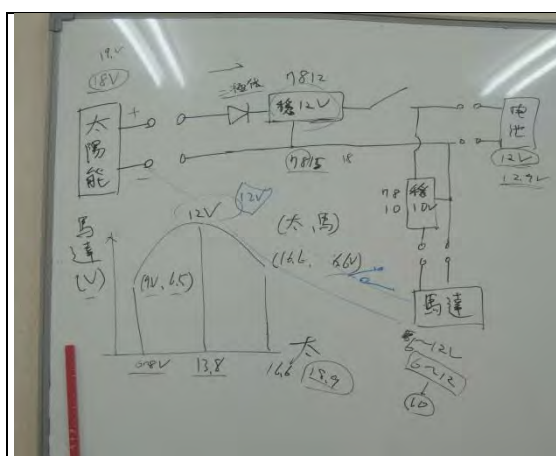 19.V
18V
太陽能
+
-
二極体
7812
穩12V
7815
18
电池
12V
12.9V
7810
穩10V
馬達
6~12V
6~12
10
馬達(V)
12V
12V
(太,馬)
(9V, 6.5)
(16.6, 6.6V)
13.8
16.6
太
18.9